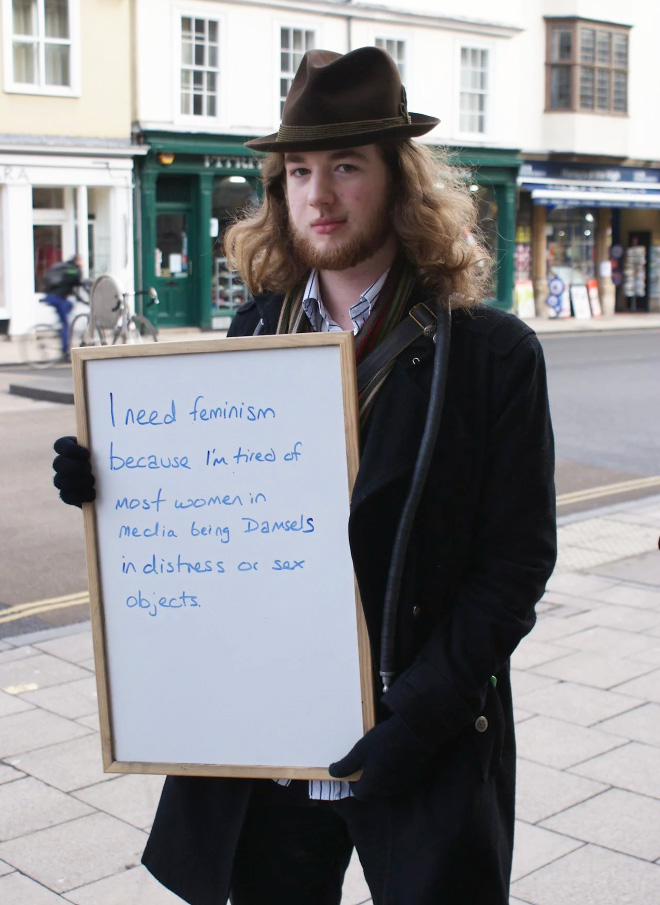 I need feminism
because I'm tired of
most women in
media being Damsels
in distress or sex
objects.